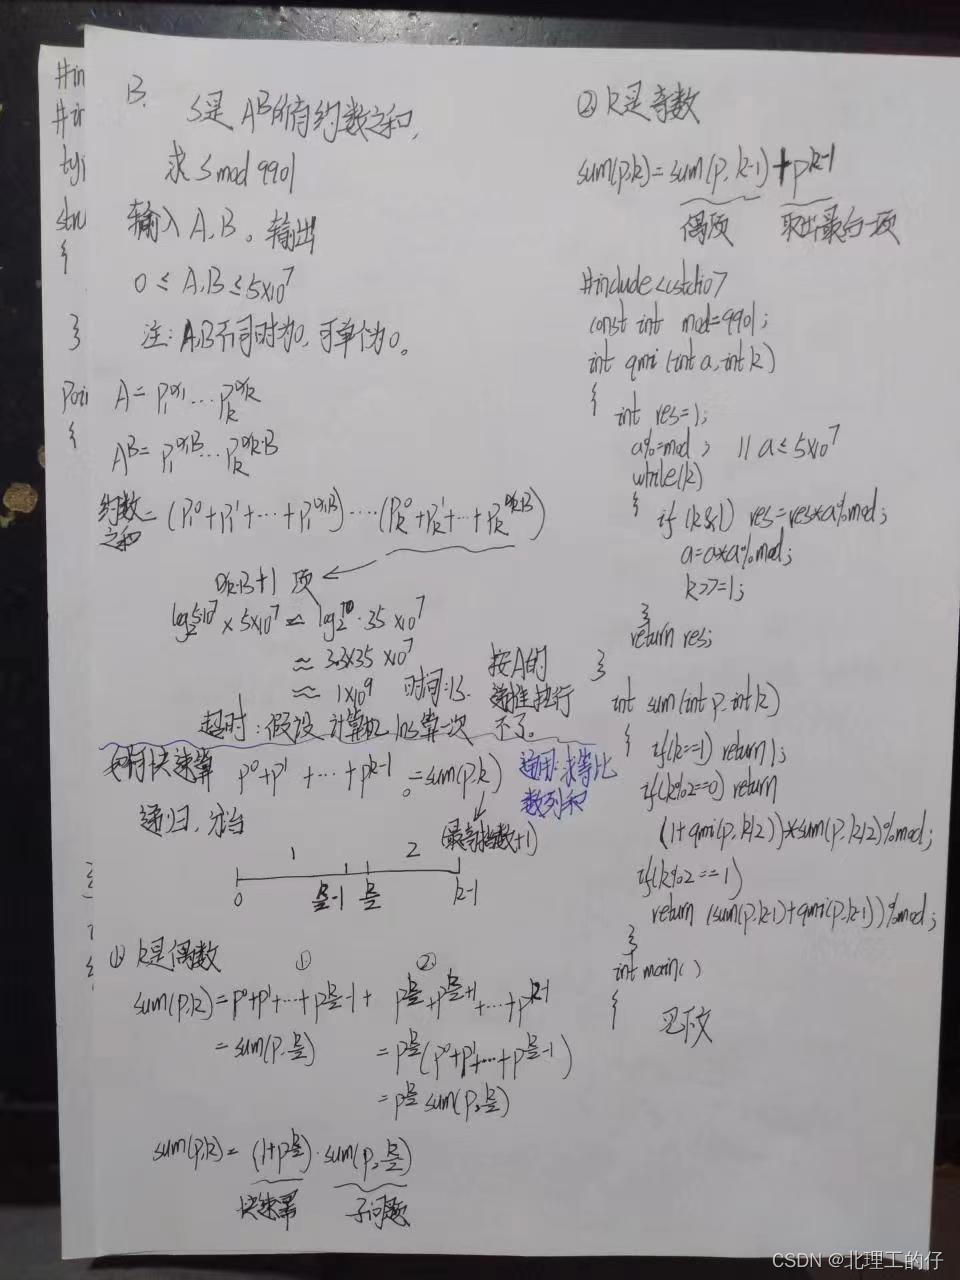 B.
S是A^B所有约数之和,
求 S mod 9901
输入 A,B。输出
0 ≤ A,B ≤ 5×10^7
注: A,B不同时为0,可单个为0。
A = P_1^{α_1} ... P_k^{α_k}
A^B = P_1^{α_1 B} ... P_k^{α_k·B}
约数之和 = (P_1^0+P_1^1+...+P_1^{α_1 B}) .... (P_k^0+P_k^1+...+P_k^{α_k·B})
α_k·B+1 项
≈ 3.3×35×10^7
≈ 1×10^9 时间:1s.
按A的
执行
不了。
超时: 假设计算机 1ns算一次
如何快速算 p^0+p^1+...+p^{k-1} = sum(p,k)
适用:求等比
数列和
递归,分治
(最高指数+1)
1 2
0 k/2-1 k/2 k-1
① k是偶数 ① ②
sum(p,k)=p^0+p^1+...+p^{k/2-1}+ p^{k/2}+p^{k/2+1}+...+p^{k-1}
= sum(p,k/2) = p^{k/2}(p^0+p^1+...+p^{k/2-1})
= p^{k/2} sum(p,k/2)
sum(p,k)= (1+p^{k/2})·sum(p,k/2)
快速幂 子问题
② k是奇数
sum(p,k)=sum(p,k-1)+p^{k-1}
偶项 取出最后一项
#include<cstdio>
const int mod=9901;
int qmi(int a,int k)
{
int res=1;
a%=mod; // a≤5×10^7
while(k)
{
if(k&1) res=res*a%mod;
a=a*a%mod;
k>>=1;
}
return res;
}
int sum(int p,int k)
{
if(k==1) return 1;
if(k%2==0) return
(1+qmi(p,k/2))*sum(p,k/2)%mod;
if(k%2==1)
return (sum(p,k-1)+qmi(p,k-1))%mod;
}
int main()
{
见下文
#in
#in
{
}
{
CSDN @北理工的仔